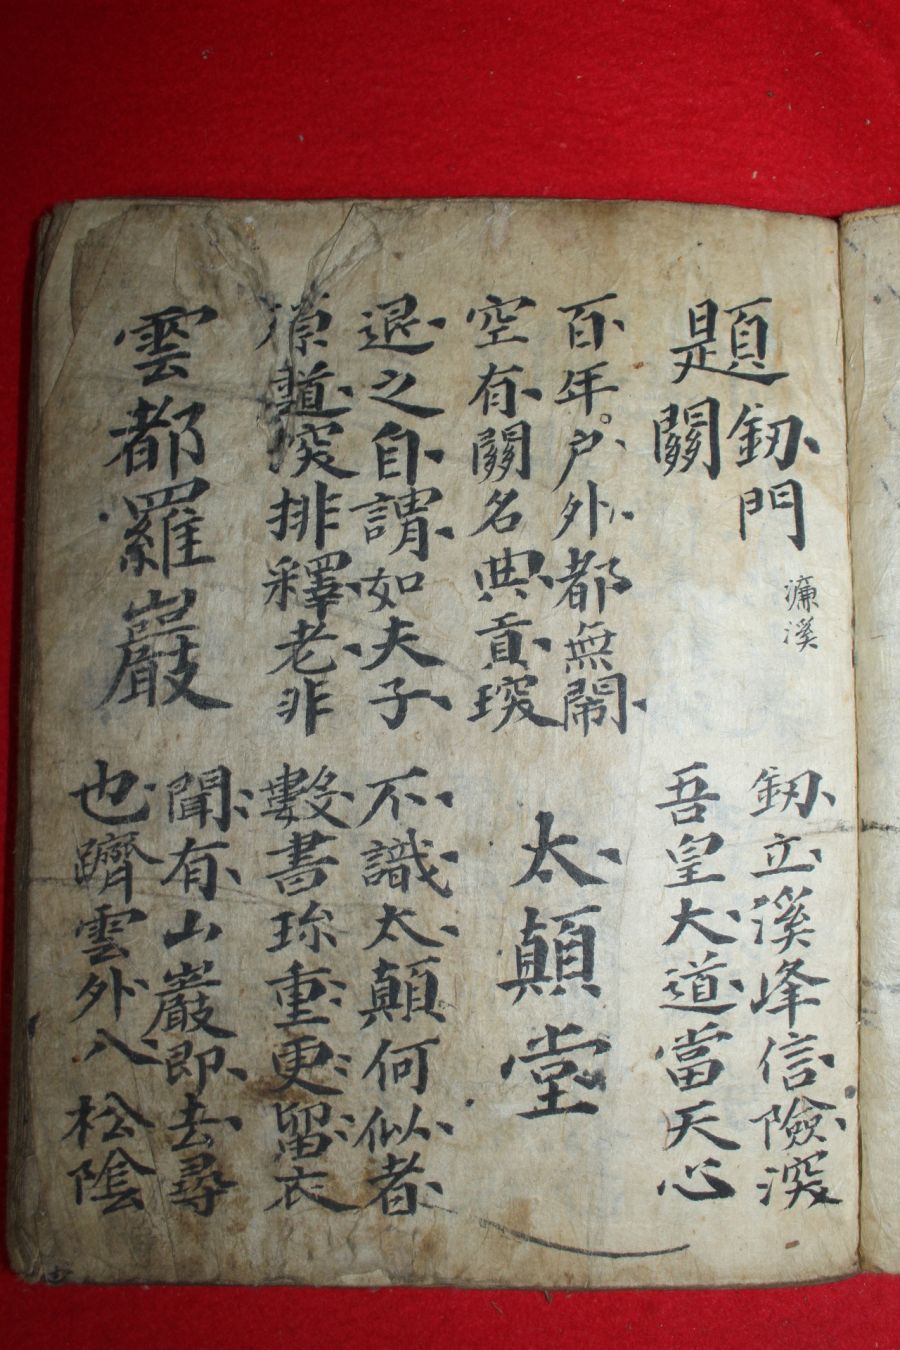 題釼門
關
濂溪
釼立溪峰信險深
吾皇大道當天心
百年户外都無鬧
空有關名典貢琛
太顛堂
退之自謂如夫子
原道深排釋老非
不識太顛何似者
數書珎重更留衣
雲都羅巖
聞有山巖即去尋
也躋雲外八松陰